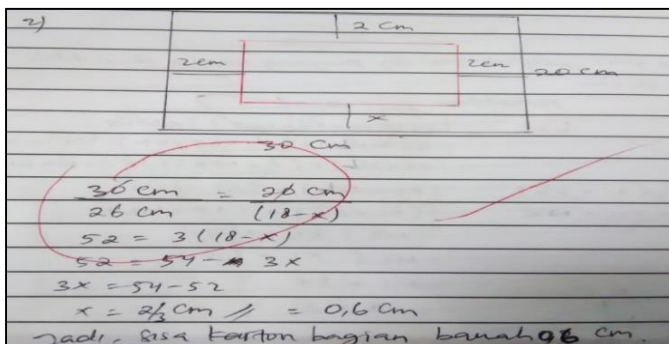 2)
2 cm
2cm 2cm 20 cm
x
30 cm
30 cm / 26 cm = 20 cm / (18-x)
52 = 3 (18-x)
52 = 54 - 3x
3x = 54-52
x = 2/3 cm // = 0,6 cm
Jadi, sisa karton bagian bawah 0,6 cm.